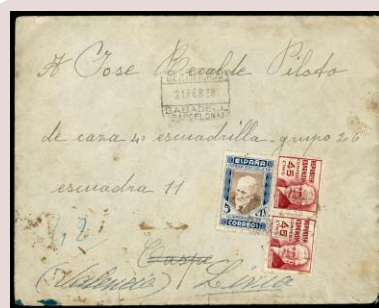 A Jose Recalde Piloto
CERTIFICADO
21 FEB 38
SABADELL
(BARCELONA)
de caza 4ª escuadrilla grupo 26
escuadra 11
ESPAÑA
5 CTS
CORREOS
REPUBLICA ESPAÑOLA
45
CTMS
REPUBLICA ESPAÑOLA
45
CTMS
(Valencia) Liria